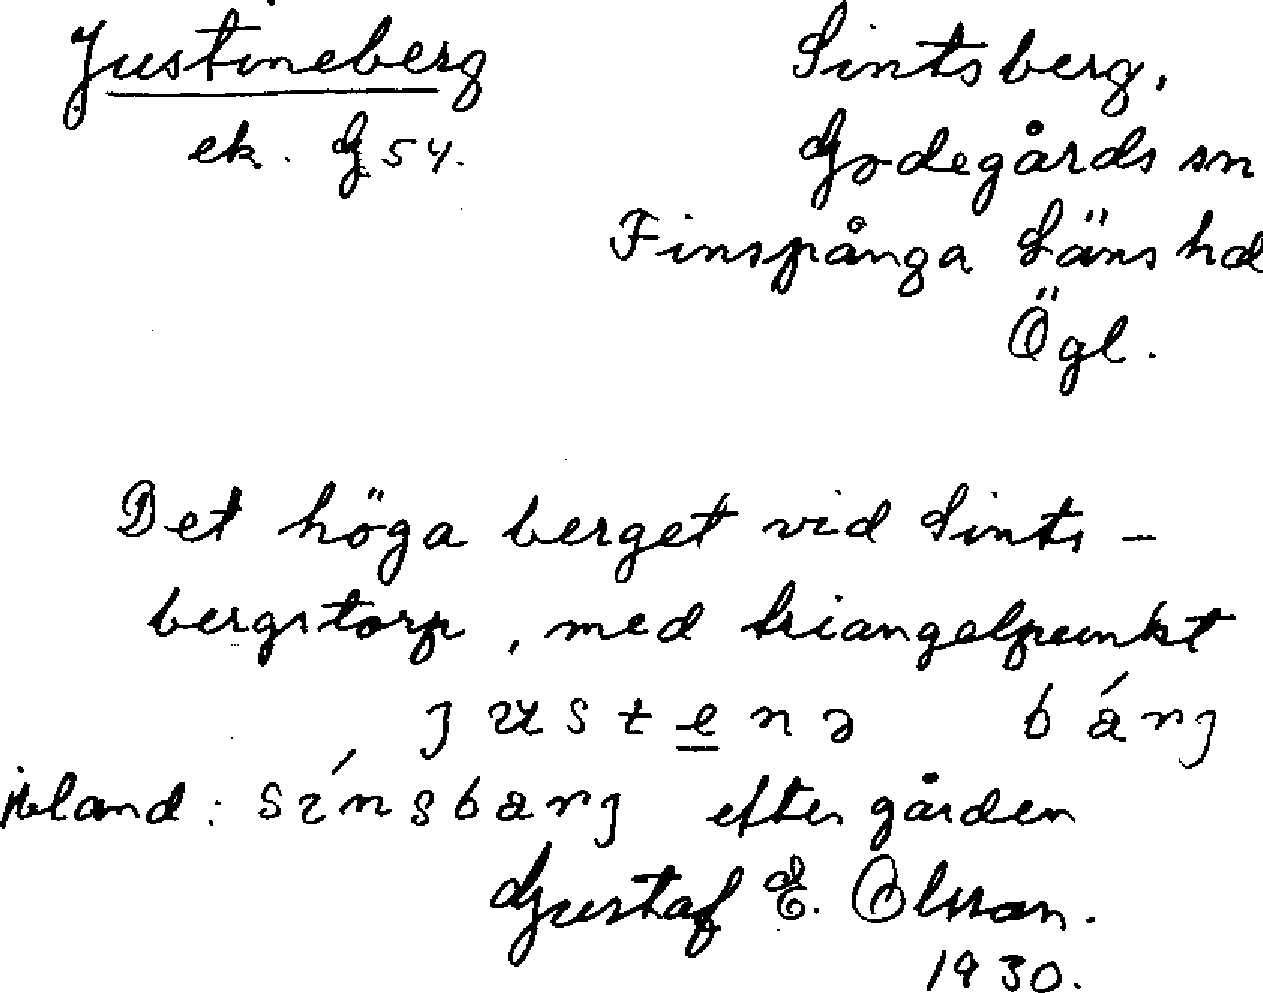 Justineberg
ek. G 54.
Sintsberg,
Godegårds sn
Finspånga Läns hd
Ögl.
Det höga berget vid Sints-
bergstorp, med triangelpunkt
justenə bárj
ibland: sínsbarj efter gården
Gustaf E. Olsson.
1930.